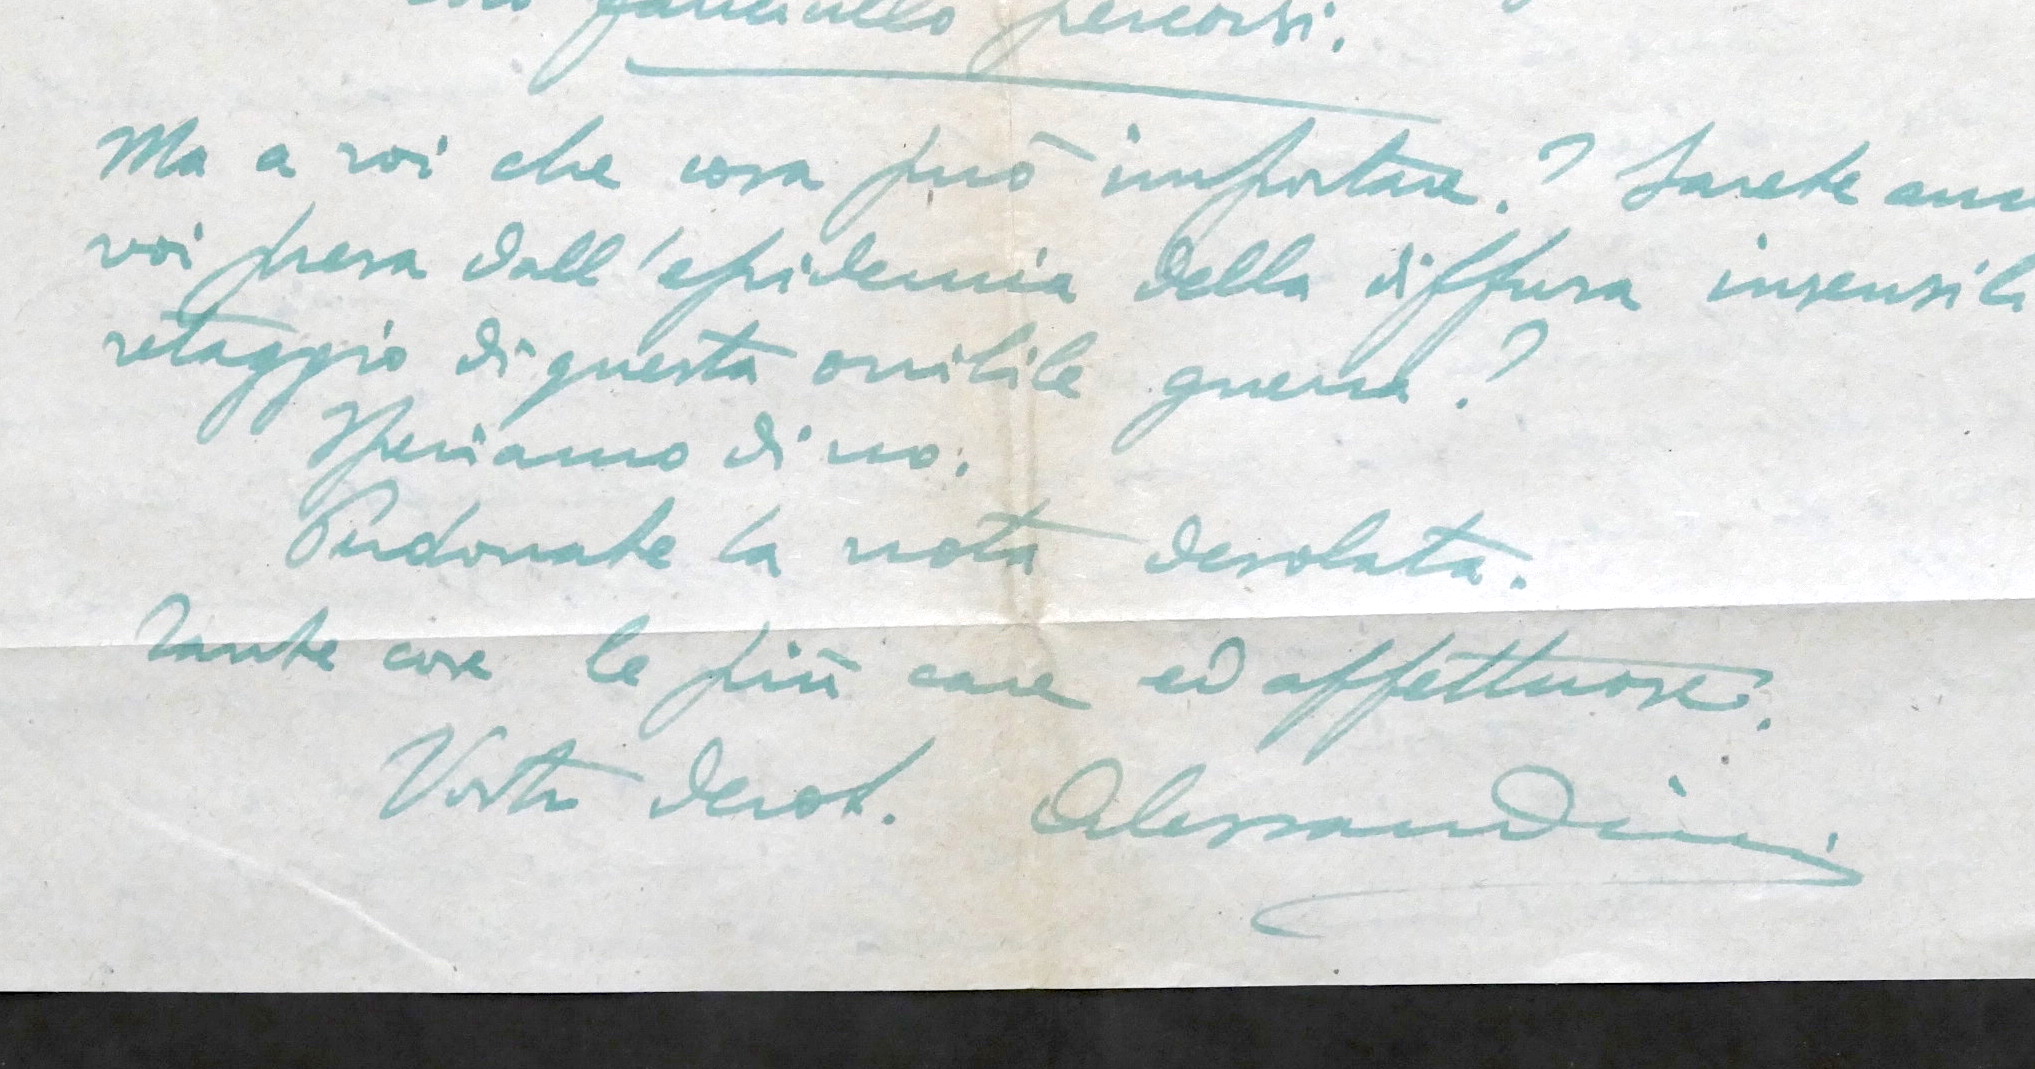 fanciullo percorsi.
Ma a voi che cosa può importare? Sarete anc
voi presa dall'epidemia della diffusa insensibi
retaggio di questa orribile guerra?
Speriamo di no.
Perdonate la nota desolata.
Tante cose le più care ed affettuose.
Vostr devot. Alessandrini